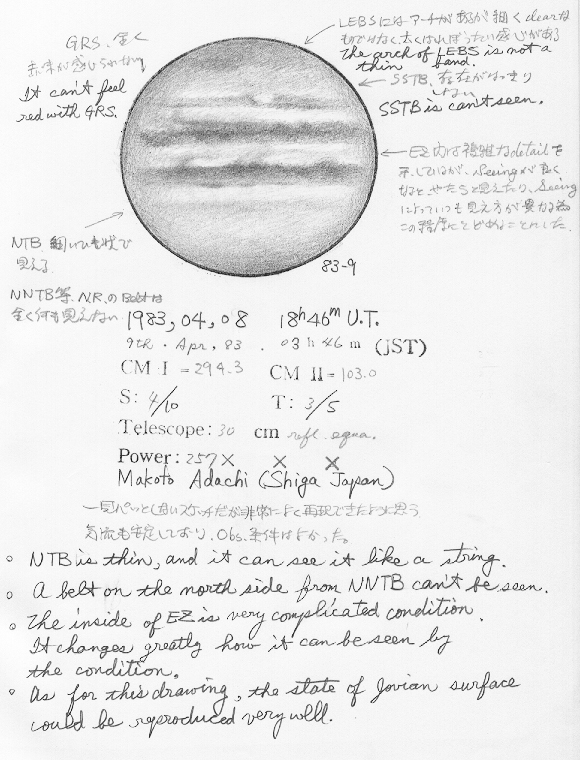 GRS、全く
赤味が感じられない
It can't feel
red with GRS.
LEBSにはアーチがあるが細くclearな
ものではなく太くぼんやりした感じがある
The arch of LEBS is not a
thin band.
SSTB、存在がはっきり
しない
SSTB is can't seen.
EZ内は複雑なdetailを
示しているが、Seeingが良く
なると見えたり、Seeing
によっていつも見え方が異なる為
この程度にとどめることにした。
NTB 細いひも状で
見える
83-9
NNTB等、N.R.のBeltは
全く何も見えない
1983, 04, 08 18h 46m U.T.
9th. Apr, 83. 03h 46m (JST)
CM I = 294.3 CM II = 103.0
S: 4/10 T: 3/5
Telescope: 30 cm refl. equa.
Power: 257× × ×
Makoto Adachi (Shiga Japan)
一見パッとしないスケッチだが非常によく再現できたように思う
気流も安定しており、Obs.条件はよかった。
○ NTB is thin, and it can see it like a string.
○ A belt on the north side from NNTB can't be seen.
○ The inside of EZ is very complicated condition.
It changes greatly how it can be seen by
the condition.
○ As for this drawing, the state of Jovian surface
could be reproduced very well.